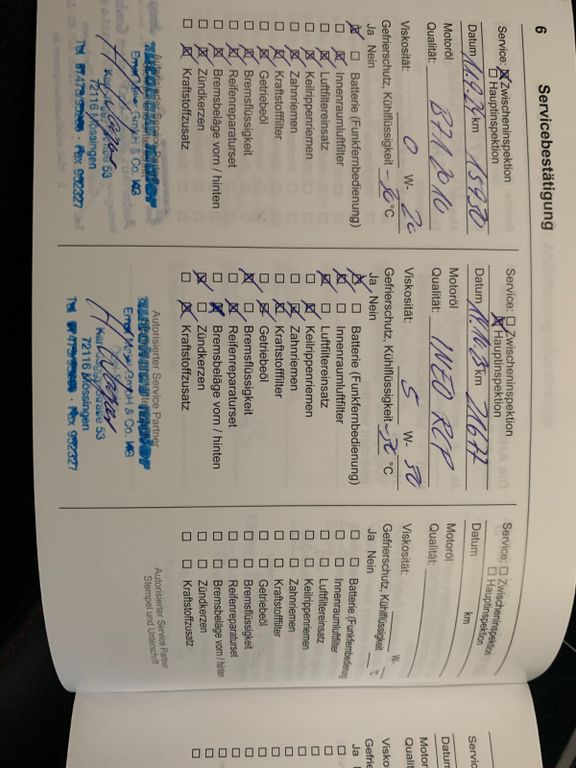 6
Servicebestätigung
Service: ☒ Zwischeninspektion
☐ Hauptinspektion
Datum km 15930
Motoröl
Qualität: B71 2010
Viskosität: 0 W-
Gefrierschutz, Kühlflüssigkeit °C
Ja Nein
Batterie (Funkfernbedienung)
Innenraumluftfilter
Luftfiltereinsatz
Keilrippenriemen
Zahnriemen
Kraftstofffilter
Getriebeöl
Bremsflüssigkeit
Reifenreparaturset
Bremsbeläge vorn / hinten
Zündkerzen
Kraftstoffzusatz
72116 Mössingen
Service: ☐ Zwischeninspektion
☒ Hauptinspektion
Datum km 21677
Motoröl
Qualität: INEO RCP
Viskosität: 5 W- 30
Gefrierschutz, Kühlflüssigkeit °C
Ja Nein
Batterie (Funkfernbedienung)
Innenraumluftfilter
Luftfiltereinsatz
Keilrippenriemen
Zahnriemen
Kraftstofffilter
Getriebeöl
Bremsflüssigkeit
Reifenreparaturset
Bremsbeläge vorn / hinten
Zündkerzen
Kraftstoffzusatz
Autorisierter Service Partner
72116 Mössingen
Service: ☐ Zwischeninspektion
☐ Hauptinspektion
Datum km
Motoröl
Qualität:
Viskosität: W-
Gefrierschutz, Kühlflüssigkeit °C
Ja Nein
☐ ☐ Batterie (Funkfernbedienung)
☐ ☐ Innenraumluftfilter
☐ ☐ Luftfiltereinsatz
☐ ☐ Keilrippenriemen
☐ ☐ Zahnriemen
☐ ☐ Kraftstofffilter
☐ ☐ Getriebeöl
☐ ☐ Bremsflüssigkeit
☐ ☐ Reifenreparaturset
☐ ☐ Bremsbeläge vorn / hinten
☐ ☐ Zündkerzen
☐ ☐ Kraftstoffzusatz
Autorisierter Service Partner
Stempel und Unterschrift
Servic
Datum
Motor
Qualit
Visko
Gefri
Ja